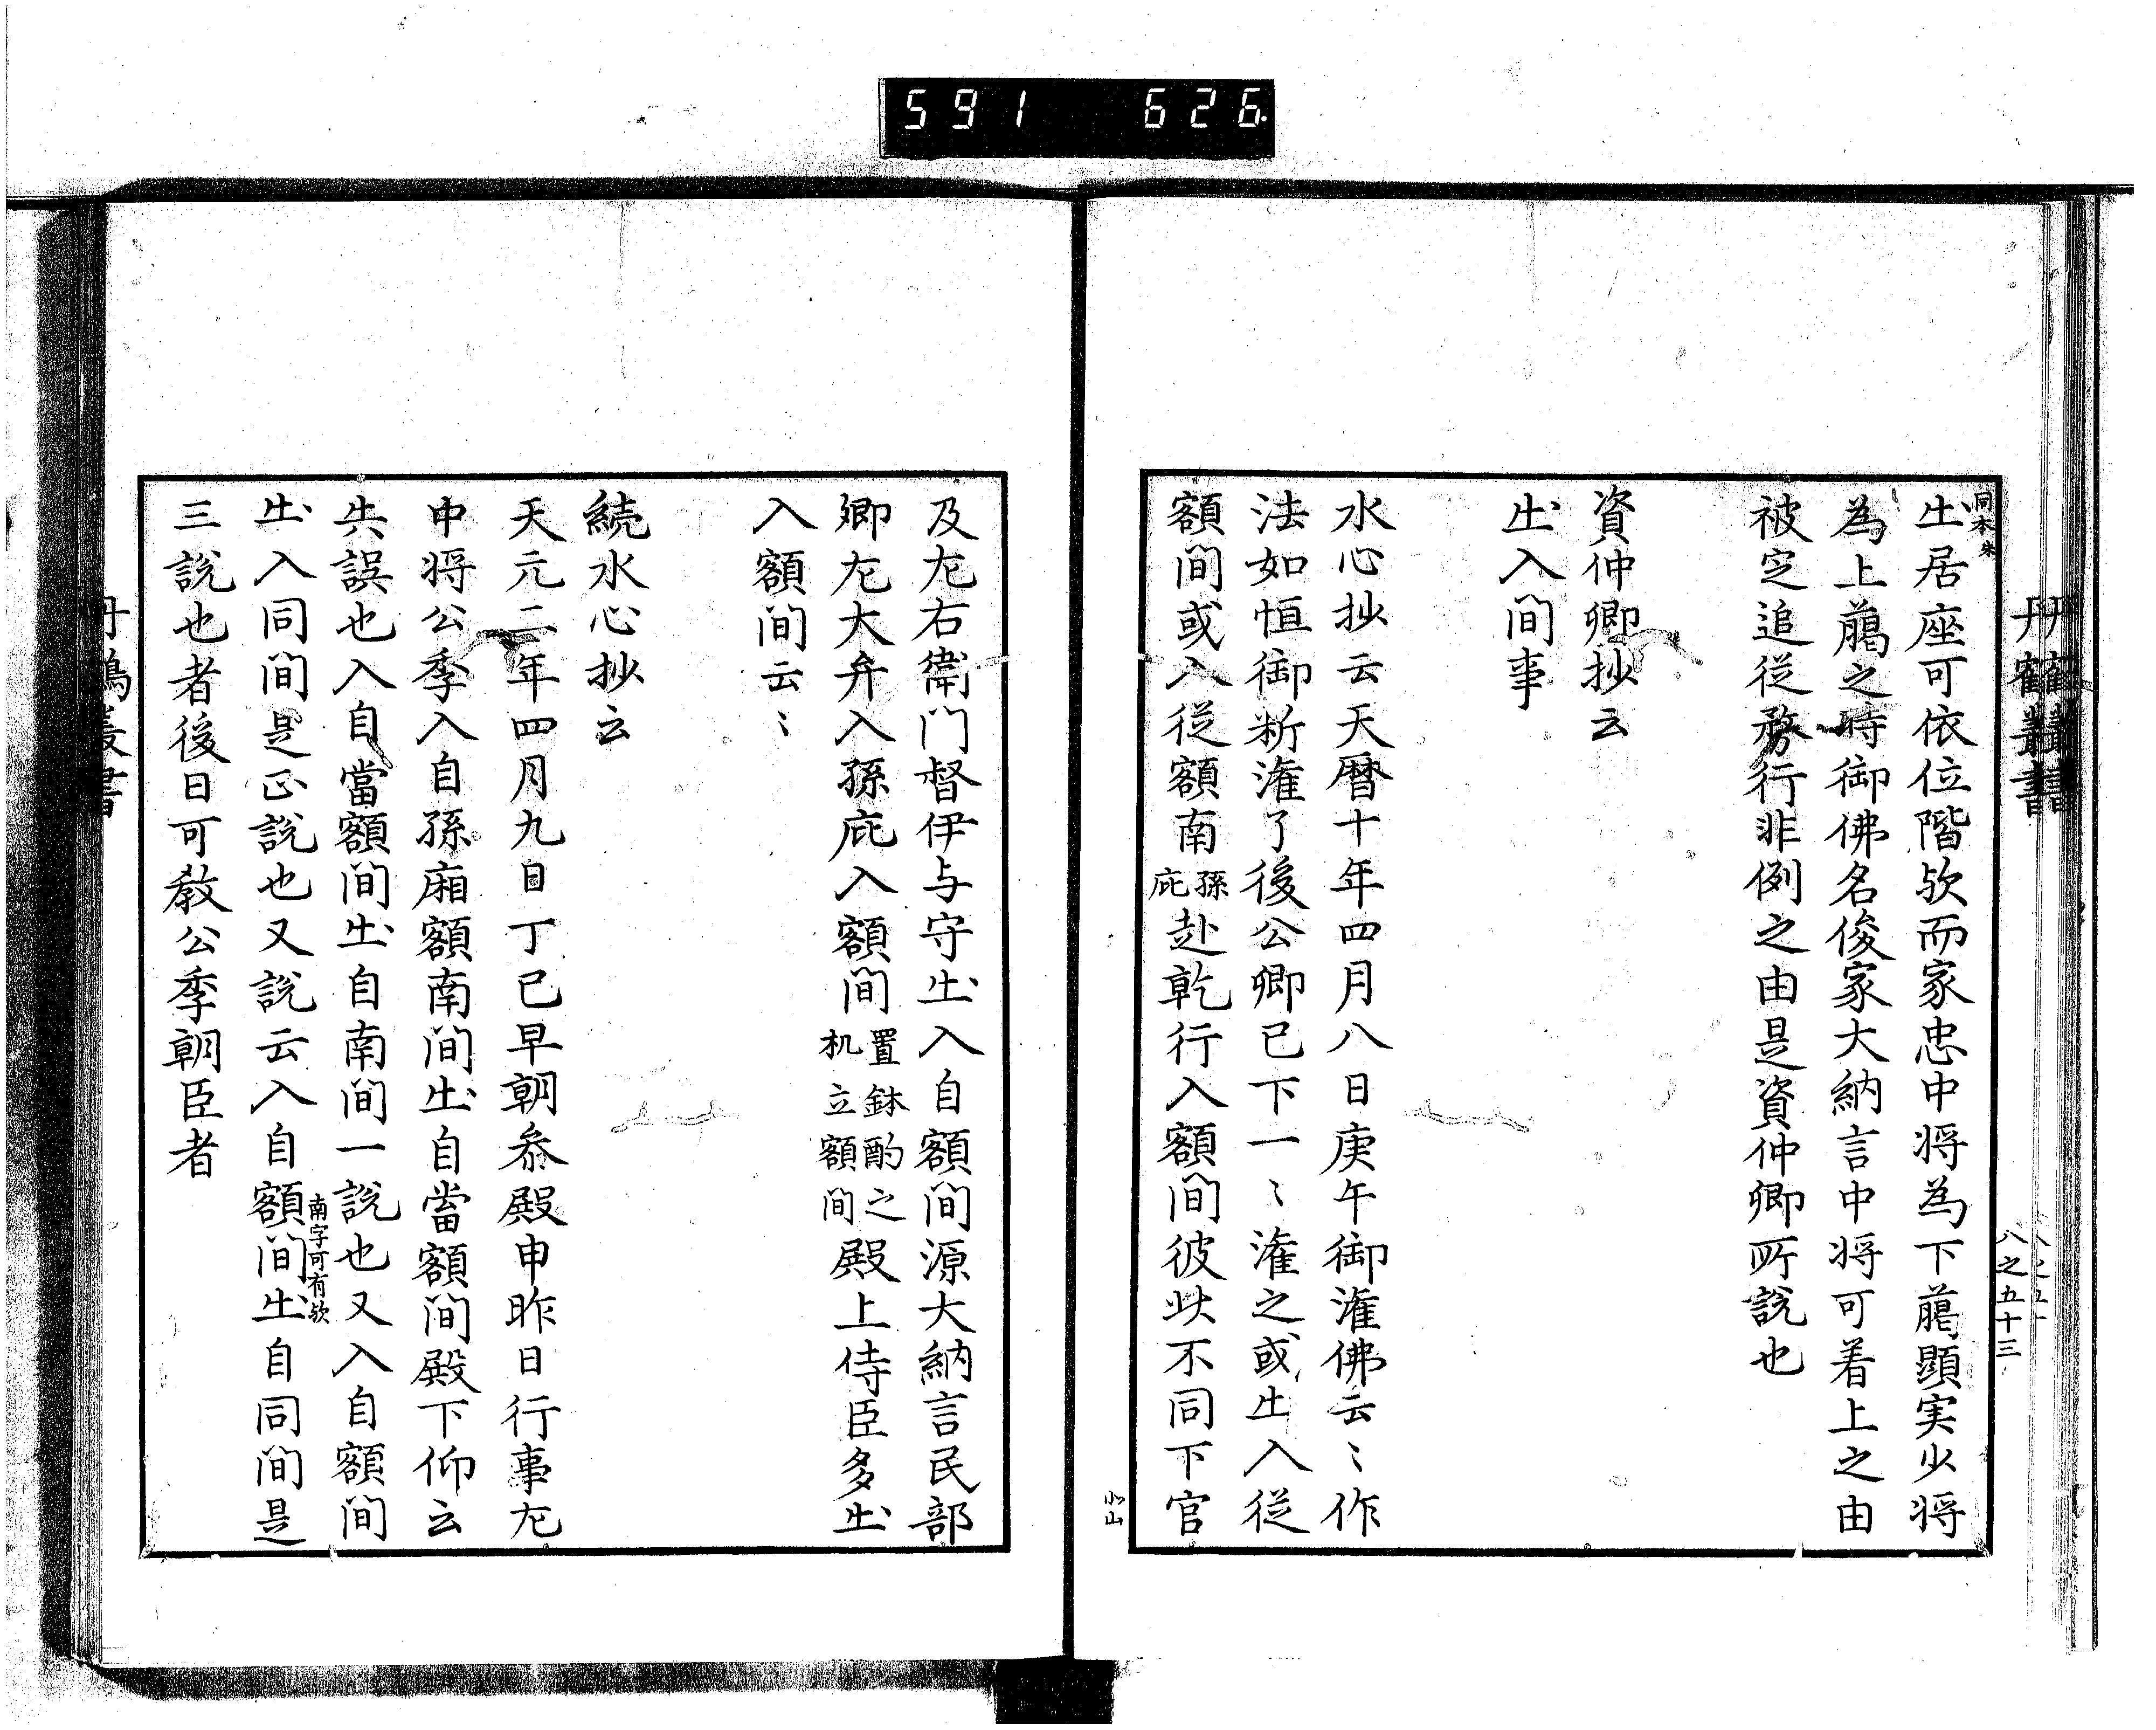 591 626
丹鶴叢書
八之五十三
同本朱
出居座可依位階欤而家忠中将為下﨟顕実少将
為上﨟之時御佛名俊家大納言中将可着上之由
被定追従務行非例之由是資仲卿所説也
資仲卿抄云
出入间事
水心抄云天暦十年四月八日庚午御灌佛云〻作
法如恒御斯灌了後公卿已下一〻灌之或出入従
額间或入従額南孫庇赴乾行入額间彼此不同下官
及左右衛门督伊与守出入自額间源大納言民部
卿左大弁入孫庇入額间置鉢酌之机立額间殿上侍臣多出
入額间云〻
続水心抄云
天元二年四月九日丁巳早朝参殿申昨日行事左
中将公季入自孫廂額南间出自當額间殿下仰云
失誤也入自當額间出自南间一説也又入自額间
出入同间是正説也又説云入自額间出自同间是
南字可有欤
三説也者後日可教公季朝臣者